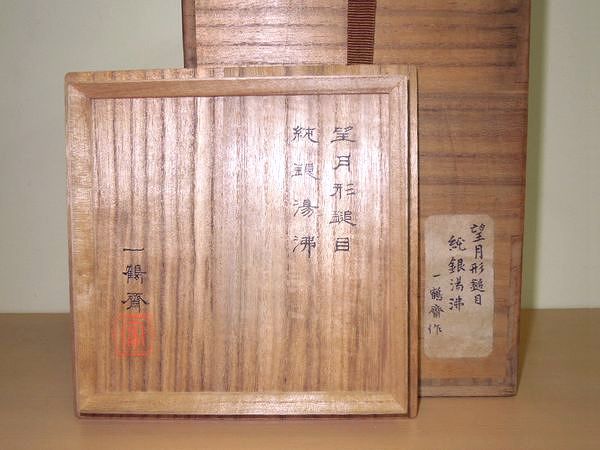 望月形鎚目
純銀湯沸
一鶴齋
望月形鎚目
純銀湯沸
一鶴齋作